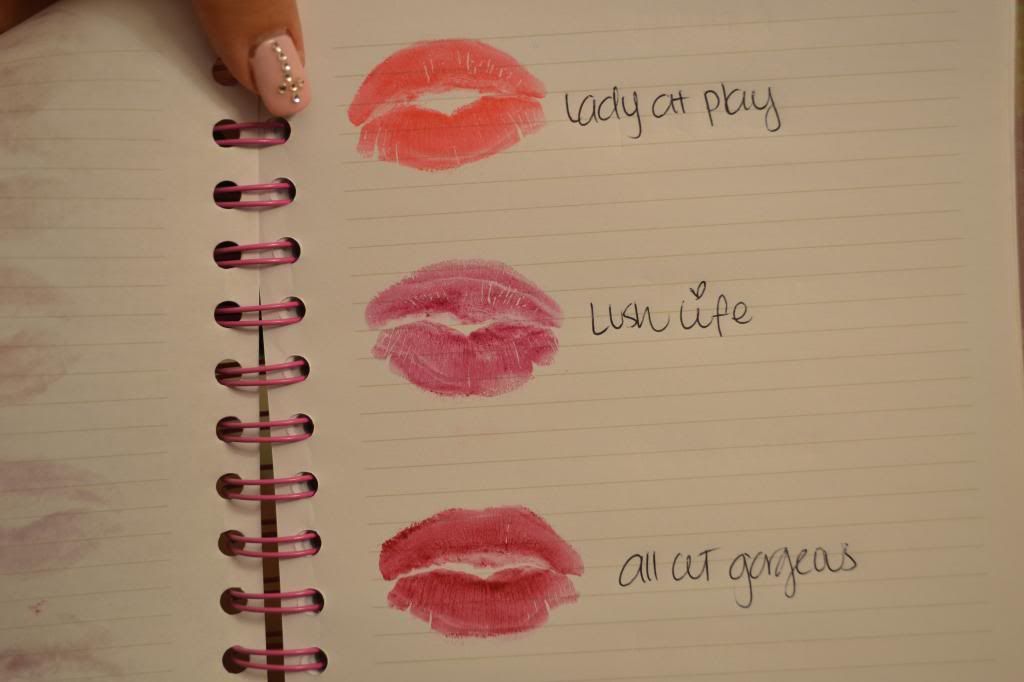 Lady at play
Lush Life
all out gorgeous